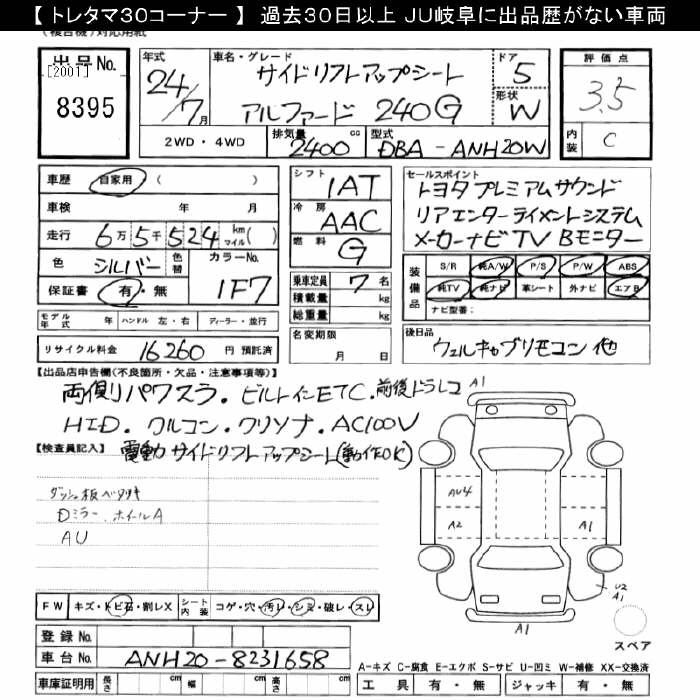 【 トレタマ30コーナー 】 過去30日以上 JU岐阜に出品歴がない車両
(複合機)対応用紙
出品No. [2001] 8395
年式 24/7月
車名・グレード サイドリフトアップシート アルファード 240G
ドア 5
形状 W
評価点 3.5
内装 C
2WD・4WD 排気量 2400 cc 型式 DBA-ANH20W
車歴 自家用 ( )
車検 年 月
走行 6万5千524 km マイル( )
色 シルバー 色替 カラーNo. 1F7
保証書 有・無
モデル年式 ハンドル 左・右 ディーラー・並行
リサイクル料金 16260 円 預託済
シフト 1AT
冷房 AAC
燃料 G
乗車定員 7 名
積載量 kg
総重量 kg
名変期限 月 日
セールスポイント
トヨタプレミアムサウンド
リアエンターテイメントシステム
メーカーナビTV Bモニター
装備品 S/R 純A/W P/S P/W ABS
純TV 純ナビ 革シート 外ナビ エアB
ナビ型番:
後日品
ウェルキャブリモコン他
【出品店申告欄(不良箇所・欠品・注意事項等)】
両側パワスラ.ビルトインETC.前後ドラレコ
HID.クルコン.クリソナ.AC100V
電動サイドリフトアップシート(動作OK)
【検査員記入】
ダッシュ板ベタツキ
Dミラー.ホイールA
AU
A1
AU4
A2
A1
U2
A1
A1
スペア
FW キズ・トビ石・割レX シート内装 コゲ・穴・汚レ・シミ・破レ・スレ
登録No.
車台No. ANH20-8231658
車庫証明用 長さ cm 幅 cm 高さ cm
A-キズ C-腐食 E-エクボ S-サビ U-凹ミ W-補修 XX-交換済
工具 有・無 ジャッキ 有・無